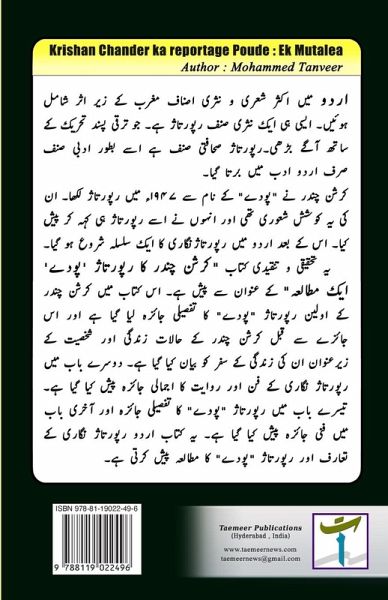 Krishan Chander ka reportage Poude : Ek Mutalea
Author : Mohammed Tanveer
اردو میں اکثر شعری و نثری اصناف مغرب کے زیر اثر شامل
ہوئیں۔ ایسی ہی ایک نثری صنف رپورتاژ ہے۔ جو ترقی پسند تحریک کے
ساتھ آگے بڑھی۔ رپورتاژ صحافتی صنف ہے اسے بطور ادبی صنف
صرف اردو ادب میں برتا گیا۔
کرشن چندر نے "پودے" کے نام سے ۱۹۴۷ء میں رپورتاژ لکھا۔ ان
کی یہ کوشش شعوری تھی اور انہوں نے اسے رپورتاژ ہی کہہ کر پیش
کیا۔ اس کے بعد اردو میں رپورتاژ نگاری کا ایک سلسلہ شروع ہو گیا۔
یہ تحقیقی و تنقیدی کتاب "کرشن چندر کا رپورتاژ 'پودے'
ایک مطالعہ" کے عنوان سے پیش ہے۔ اس کتاب میں کرشن چندر
کے اولین رپورتاژ "پودے" کا تفصیلی جائزہ لیا گیا ہے اور اس
جائزے سے قبل کرشن چندر کے حالات زندگی اور شخصیت کے
زیر عنوان ان کی زندگی کے سفر کو بیان کیا گیا ہے۔ دوسرے باب میں
رپورتاژ نگاری کے فن اور روایت کا اجمالی جائزہ پیش کیا گیا ہے۔
تیسرے باب میں رپورتاژ "پودے" کا تفصیلی جائزہ اور آخری باب
میں فنی جائزہ پیش کیا گیا ہے۔ یہ کتاب اردو رپورتاژ نگاری کے
تعارف اور رپورتاژ "پودے" کا مطالعہ پیش کرتی ہے۔
ISBN 978-81-19022-49-6
9 788119 022496
Taemeer Publications
(Hyderabad , India)
www.taemeernews.com
taemeernews@gmail.com